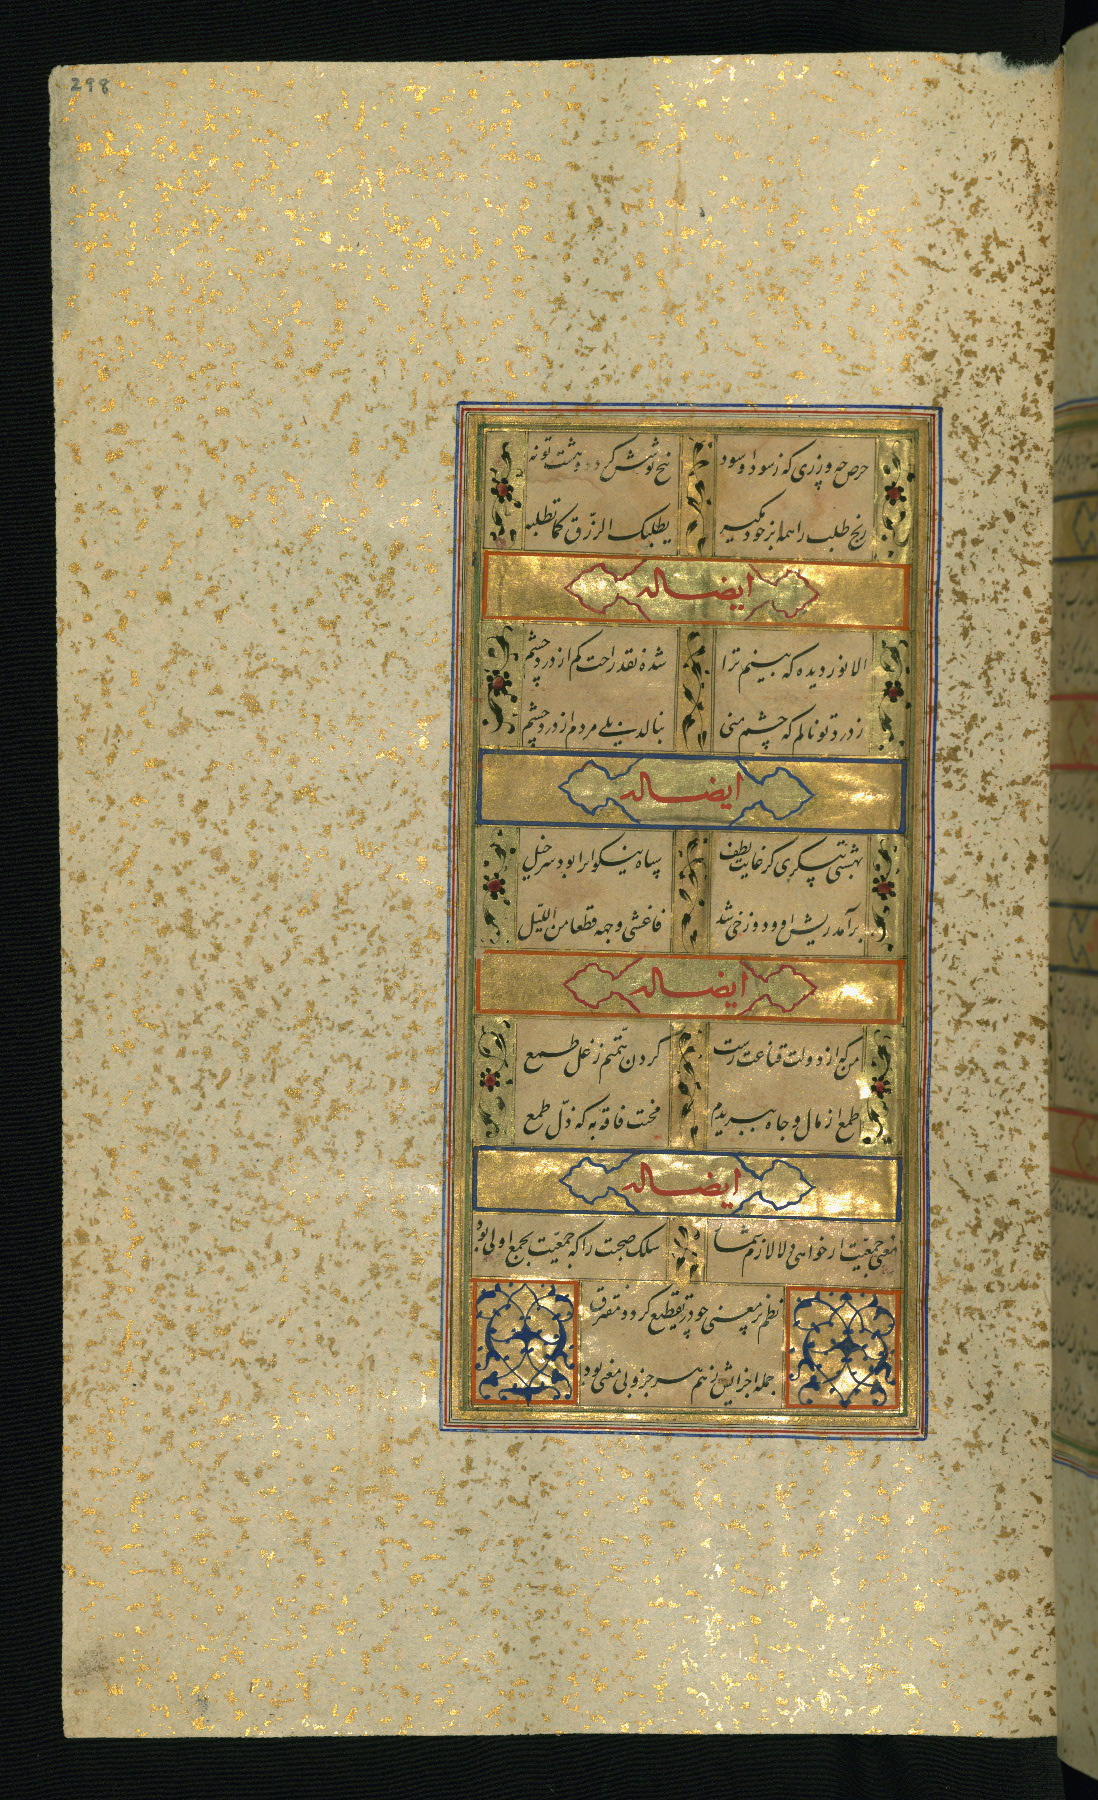 298
حرص چه ورزی که ز سود او سود
پنج تو شش گردد و هشت تو نه
رنج طلب را همه بر خود مگیر
یطلبک الرزق کما تطلبه
ایضا له
الا نور دیده که بینم ترا
شده نقد راحت کم از درد چشم
ز درد تو نالم که چشم منی
بنالند بلی مردم از درد چشم
ایضا له
بهشتی پیکری کز غایت لطف
سپاه نیکوانرا بود سرخیل
برآمد ریش او و دوزخی شد
فاغشی وجهه قطعا من اللیل
ایضا له
من که از دولت قناعت رست
گردن همتم ز غل طمع
طمع از مال و جاه ببریدم
محنت فاقه به که ذل طمع
ایضا له
معنی جمعیت ار خواهی دلا لازم شمار
سلک صحبت را که جمعیت بجمع اولی بود
نظم پر معنی چو در تقطیع گردد متفرق
جمله اجزایش ز هم هر جزو بی معنی بود